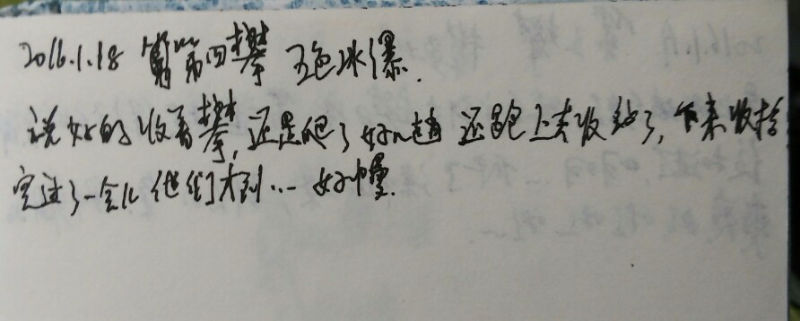 2016.1.18 第四攀 五色冰瀑.
说好的收着攀,还是爬了好几趟 还跑上去收了,下来收拾
完过了一会儿他们才到... 好慢.